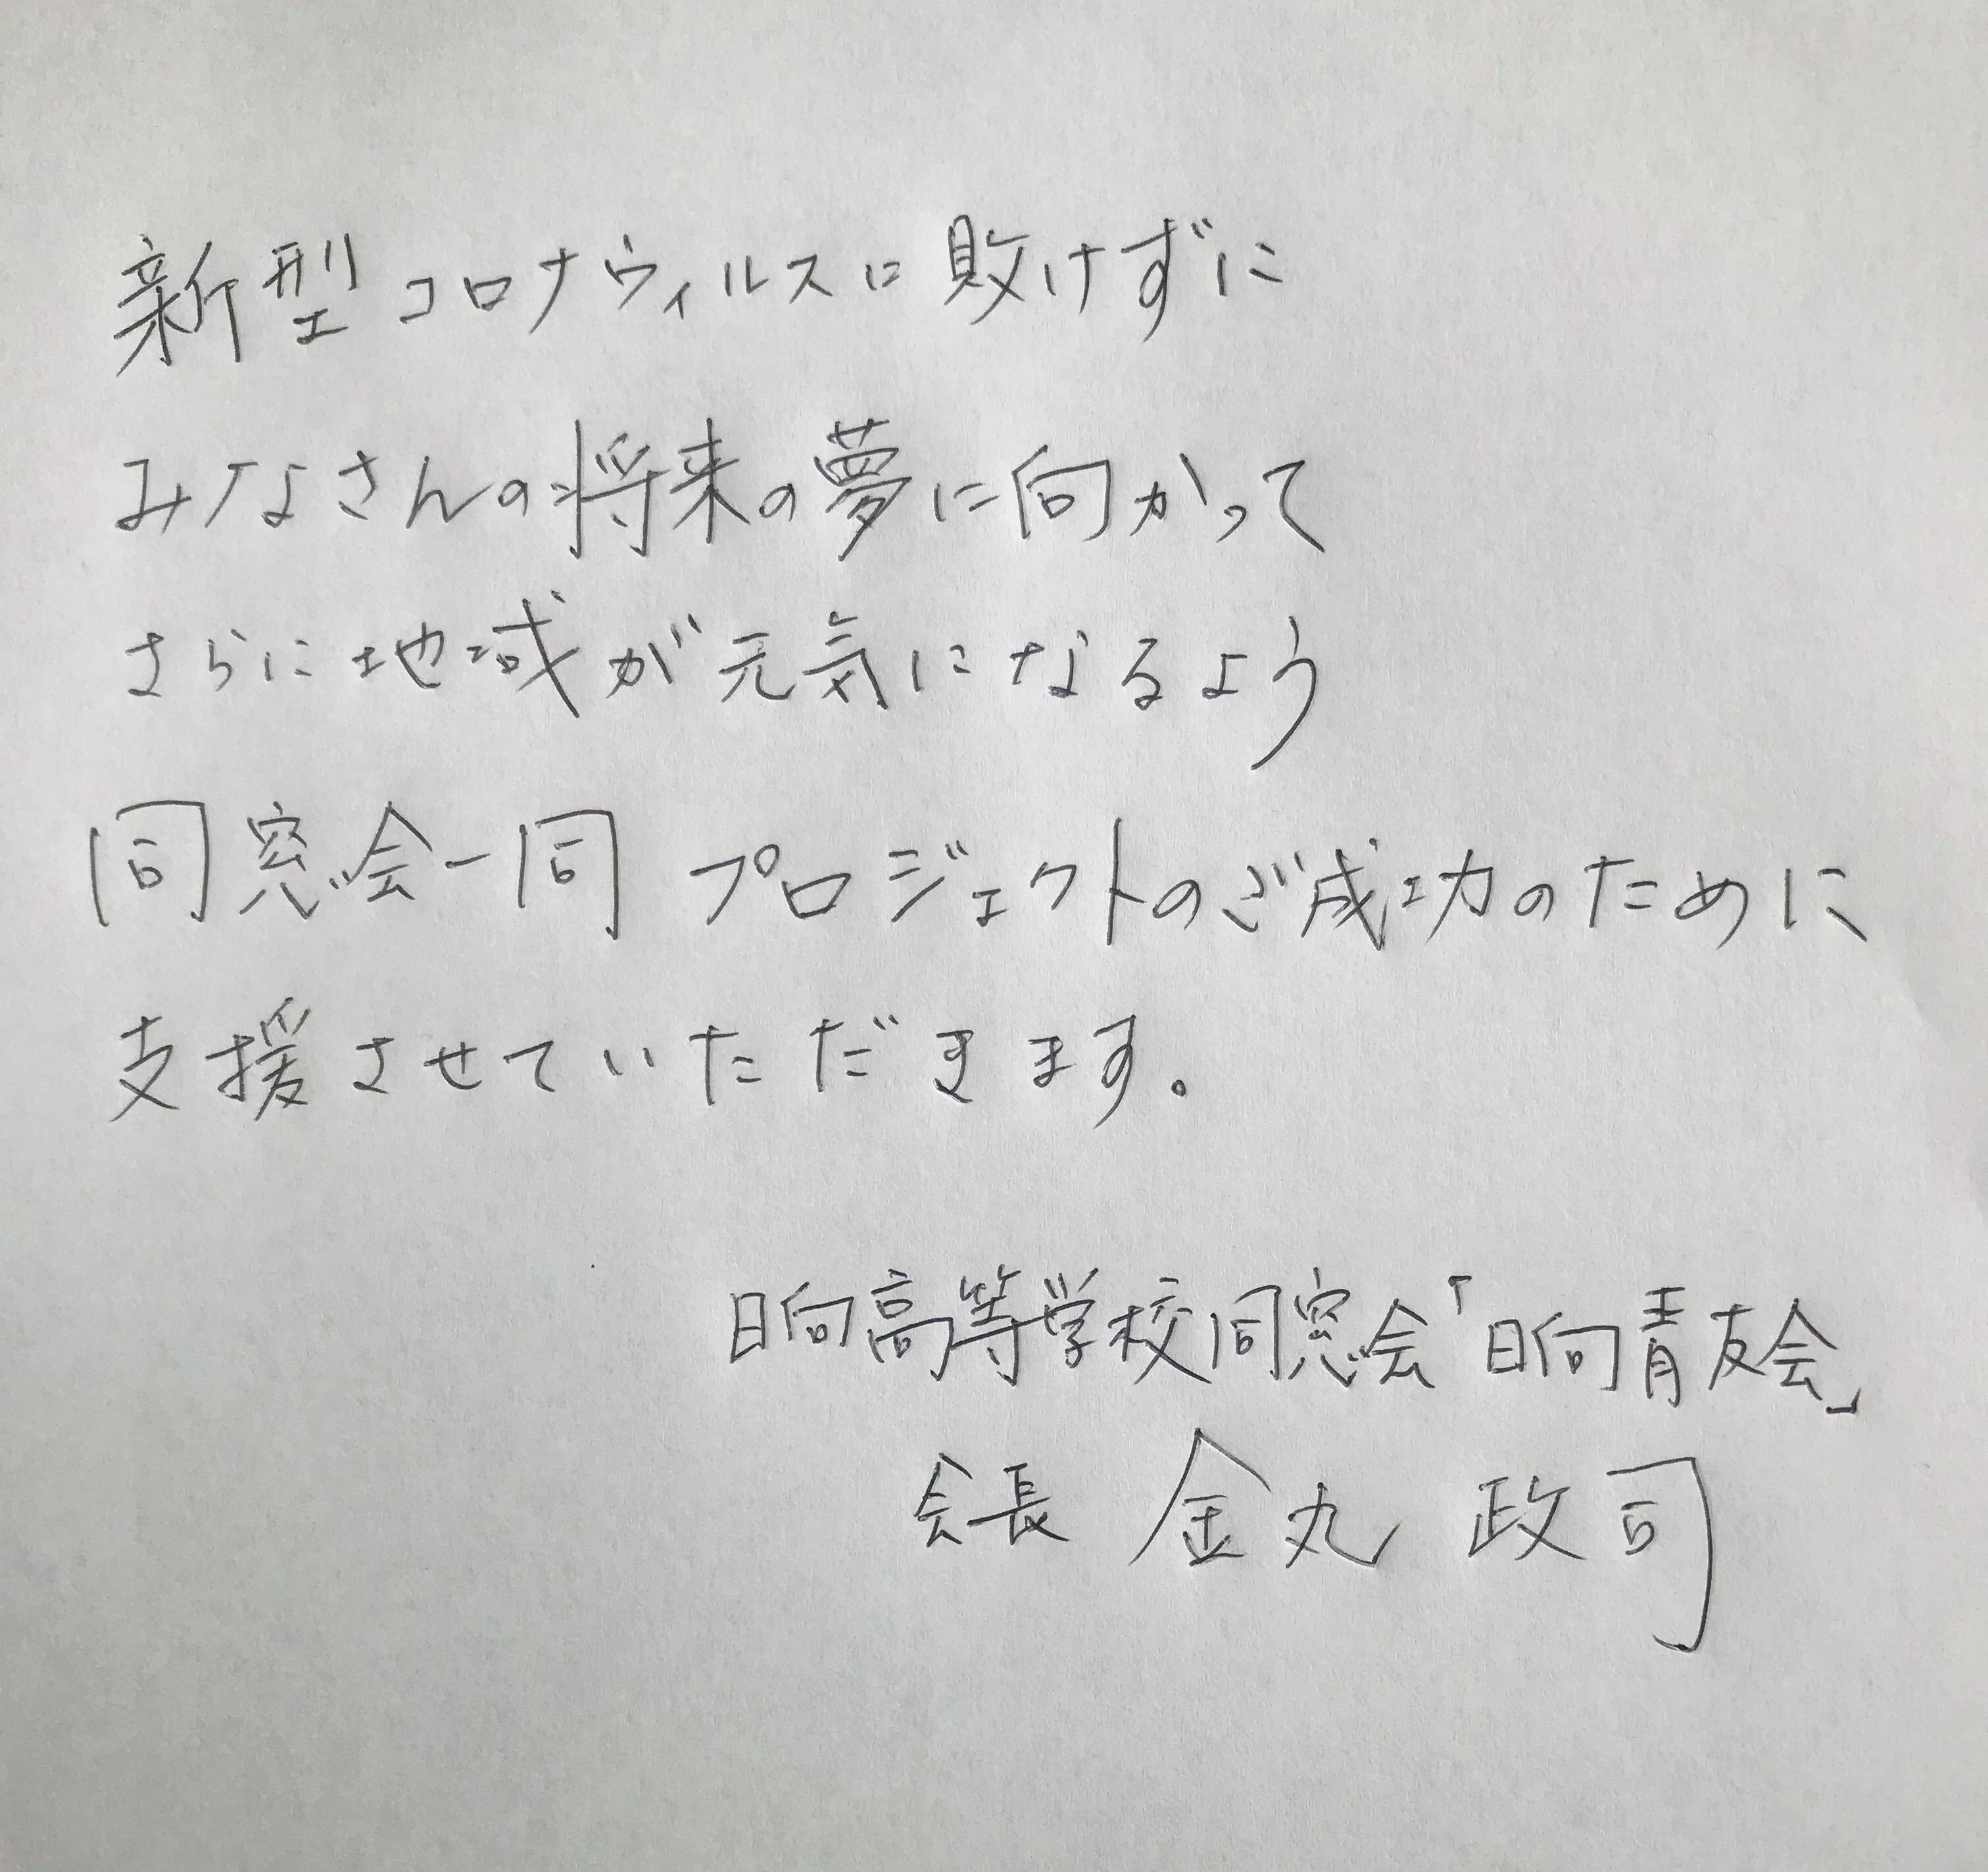 新型コロナウィルスに敗けずに
みなさんの将来の夢に向かって
さらに地域が元気になるよう
同窓会一同 プロジェクトのご成功のために
支援させていただきます。
日向高等学校同窓会「日向青友会」
会長 金丸 政司